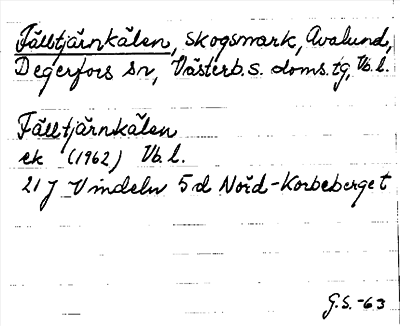 Fälltjärnkälen, skogsmark, Avalund,
Degerfors sn, Västerb. s. doms. tg, Vb. l.
Fälltjärnkälen
ek (1962) Vb. l.
21 J Vindeln 5 d Nord-Korbeberget
G.S. -63